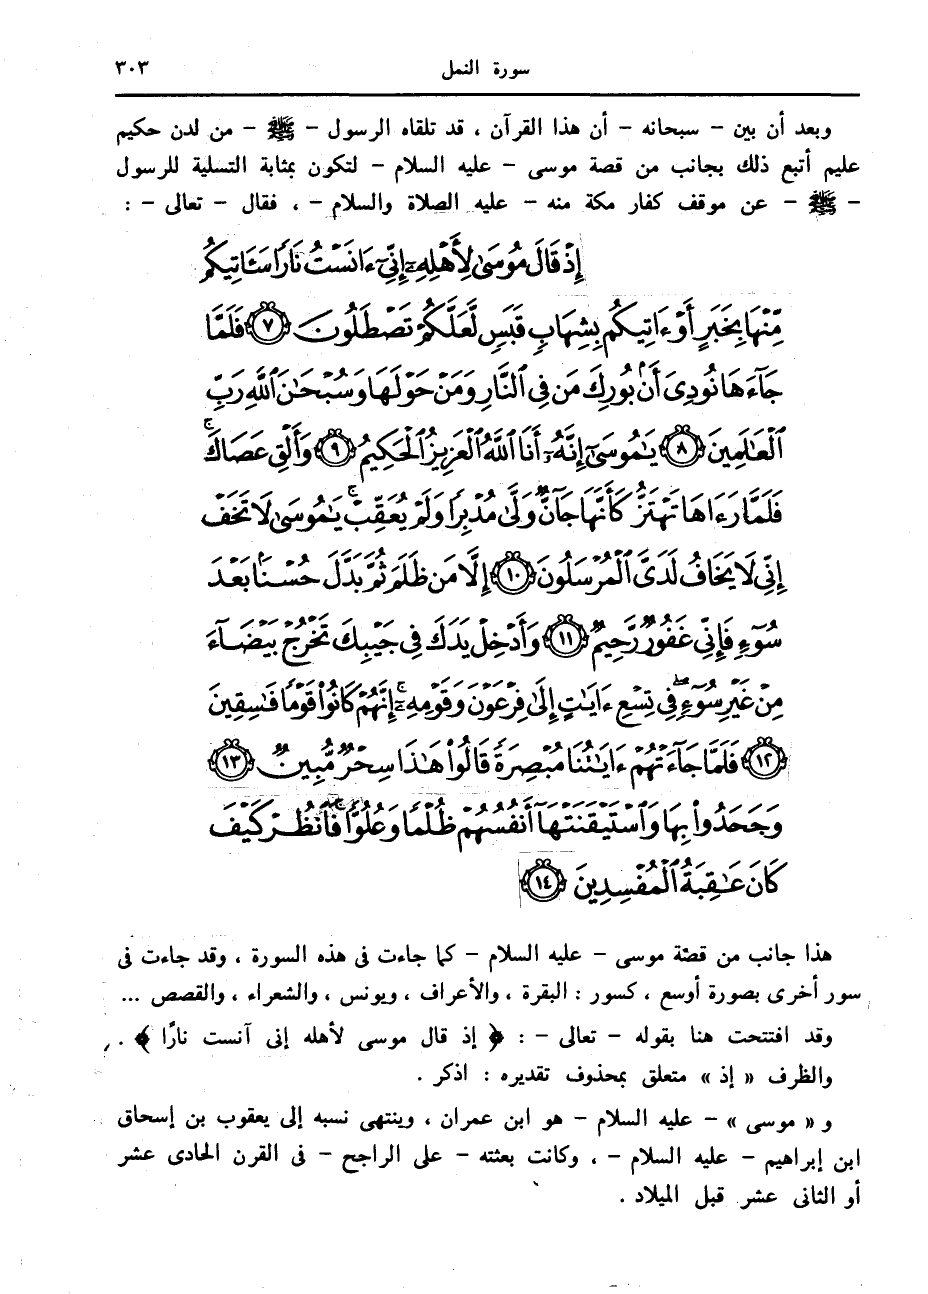 سورة النمل ٣٠٣
وبعد أن بين – سبحانه – أن هذا القرآن ، قد تلقاه الرسول – ﷺ – من لدن حكيم
عليم أتبع ذلك بجانب من قصة موسى – عليه السلام – لتكون بمثابة التسلية للرسول
– ﷺ – عن موقف كفار مكة منه – عليه الصلاة والسلام – ، فقال – تعالى – :
إِذۡ قَالَ مُوسَىٰ لِأَهۡلِهِۦٓ إِنِّيٓ ءَانَسۡتُ نَارٗا سَـَٔاتِيكُم
مِّنۡهَا بِخَبَرٍ أَوۡ ءَاتِيكُم بِشِهَابٖ قَبَسٖ لَّعَلَّكُمۡ تَصۡطَلُونَ ٧ فَلَمَّا
جَآءَهَا نُودِيَ أَنۢ بُورِكَ مَن فِي ٱلنَّارِ وَمَنۡ حَوۡلَهَا وَسُبۡحَٰنَ ٱللَّهِ رَبِّ
ٱلۡعَٰلَمِينَ ٨ يَٰمُوسَىٰٓ إِنَّهُۥٓ أَنَا ٱللَّهُ ٱلۡعَزِيزُ ٱلۡحَكِيمُ ٩ وَأَلۡقِ عَصَاكَۚ
فَلَمَّا رَءَاهَا تَهۡتَزُّ كَأَنَّهَا جَآنّٞ وَلَّىٰ مُدۡبِرٗا وَلَمۡ يُعَقِّبۡۚ يَٰمُوسَىٰ لَا تَخَفۡ
إِنِّي لَا يَخَافُ لَدَيَّ ٱلۡمُرۡسَلُونَ ١٠ إِلَّا مَن ظَلَمَ ثُمَّ بَدَّلَ حُسۡنَۢا بَعۡدَ
سُوٓءٖ فَإِنِّي غَفُورٞ رَّحِيمٞ ١١ وَأَدۡخِلۡ يَدَكَ فِي جَيۡبِكَ تَخۡرُجۡ بَيۡضَآءَ
مِنۡ غَيۡرِ سُوٓءٖۖ فِي تِسۡعِ ءَايَٰتٍ إِلَىٰ فِرۡعَوۡنَ وَقَوۡمِهِۦٓۚ إِنَّهُمۡ كَانُواْ قَوۡمٗا فَٰسِقِينَ
١٢ فَلَمَّا جَآءَتۡهُمۡ ءَايَٰتُنَا مُبۡصِرَةٗ قَالُواْ هَٰذَا سِحۡرٞ مُّبِينٞ ١٣
وَجَحَدُواْ بِهَا وَٱسۡتَيۡقَنَتۡهَآ أَنفُسُهُمۡ ظُلۡمٗا وَعُلُوّٗاۚ فَٱنظُرۡ كَيۡفَ
كَانَ عَٰقِبَةُ ٱلۡمُفۡسِدِينَ ١٤
هذا جانب من قصة موسى – عليه السلام – كما جاءت فى هذه السورة ، وقد جاءت فى
سور أخرى بصورة أوسع ، كسور : البقرة ، والأعراف ، ويونس ، والشعراء ، والقصص ...
وقد افتتحت هنا بقوله – تعالى – : ﴿ إذ قال موسى لأهله إنى آنست نارًا ﴾ .
والظرف « إذ » متعلق بمحذوف تقديره : اذكر .
و « موسى » – عليه السلام – هو ابن عمران ، وينتهى نسبه إلى يعقوب بن إسحاق
ابن إبراهيم – عليه السلام – ، وكانت بعثته – على الراجح – فى القرن الحادى عشر
أو الثانى عشر قبل الميلاد .